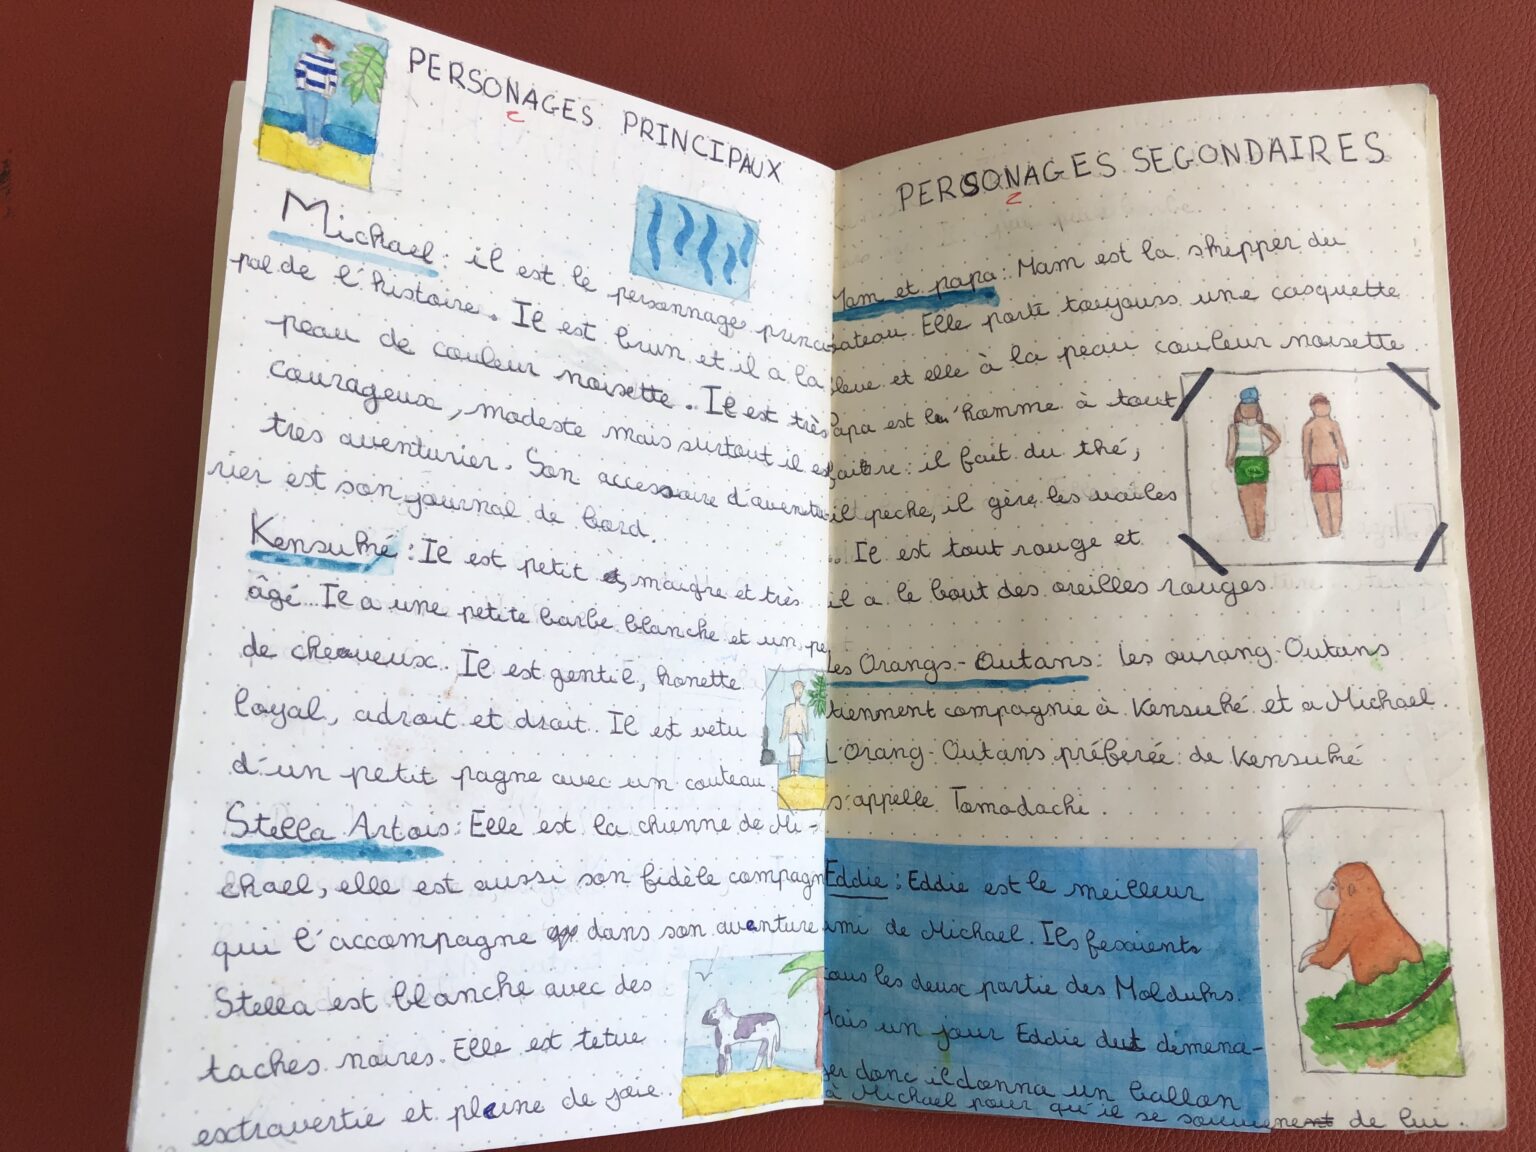 PERSONAGES PRINCIPAUX
Michael : il est le personnage princi-
pal de l'histoire. Il est brun et il a la
peau de couleur noisette. Il est très
courageux, modeste mais surtout il est
tres aventurier. Son accessoire d'aventu-
rier est son journal de bord.
Kensuké : Il est petit, maigre et très
âgé... Il a une petite barbe blanche et un peu
de cheveux. Il est gentil, honette
loyal, adroit et droit. Il est vetu
d'un petit pagne avec un couteau
Stella Artois : Elle est la chienne de Mi-
chael, elle est aussi son fidèle compagn
qui l'accompagne dans son aventure
Stella est blanche avec des
taches noires. Elle est tetue
extravertie et pleine de joie.
PERSONAGES SEGONDAIRES
Mam et papa : Mam est la skipper du
bateau. Elle porte toujours une casquette
bleue et elle à la peau couleur noisette
Papa est l'homme à tout
faire : il fait du thé,
il peche, il gère les voiles
... Il est tout rouge et
il a le bout des oreilles rouges
Les Orangs-Outans : les ourang-Outans
tiennent compagnie à Kensuké et a Michael.
L'Orang-Outans préferée de Kensuké
s'appelle Tomodachi.
Eddie : Eddie est le meilleur
ami de Michael. Ils fesaients
tous les deux partie des Molduks.
Mais un jour Eddie dut démena-
ger donc il donna un ballon
à Michael pour qu'il se souvienent de lui.